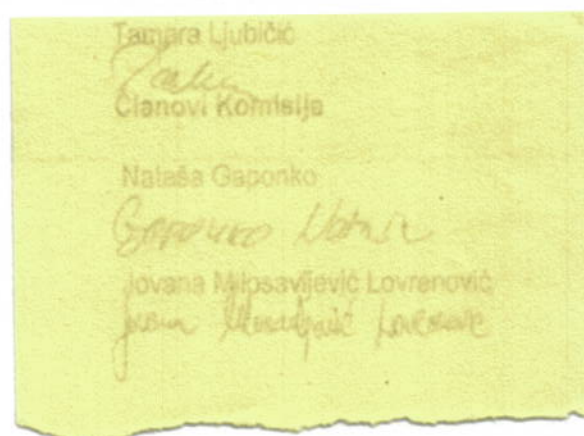 Tamara Ljubičić
Članovi Komisije
Nataša Gaponko
Gaponko Nataša
Jovana Milosavljević Lovrenović
Jovana Milosavljević Lovrenović